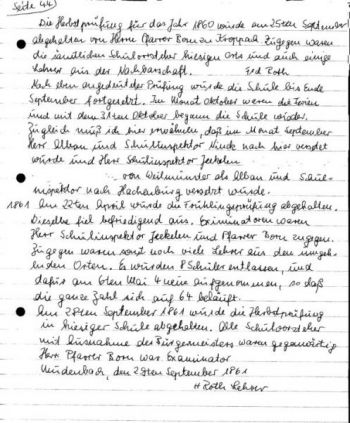 Seite 44
Die Herbstprüfung für das Jahr 1860 wurde am 25ten September
abgehalten von Herrn Pfarrer Born zu Kroppach. Zugegen waren
die sämtlichen Schulvorsteher hiesigen Orts und auch einige
Lehrer aus der Nachbarschaft. Roth
Nach eben angedeuteter Prüfung wurde die Schule bis Ende
September fortgesetzt. Im Monat Oktober waren die Ferien
und mit dem 21ten Oktober begann die Schule wieder.
Zugleich muß ich hier erwähnen, daß im Monat September
Herr Alban und Schulinspektor nach hier versetzt
wurde und Herr Schulinspektor Jeckeln
von Weilmünster als Alban und Schul-
inspektor nach Hachenburg versetzt wurde.
1861 Am 22ten April wurde die Frühlingsprüfung abgehalten.
Dieselbe fiel befriedigend aus. Examinatoren waren
Herr Schulinspektor Jeckeln und Pfarrer Born zugegen.
Zugegen waren sonst noch viele Lehrer aus den umgeh-
enden Orten. Es wurden 8 Schüler entlassen, und
dafür am 6ten Mai 4 neue aufgenommen, so daß
die ganze Zahl sich auf 64 beläuft.
Am 28ten September 1861 wurde die Herbstprüfung
in hiesiger Schule abgehalten. Alle Schulvorsteher
mit Ausnahme des Bürgermeisters waren gegenwärtig
Herr Pfarrer Born war Examinator
den 28ten September 1861
Roth Lehrer